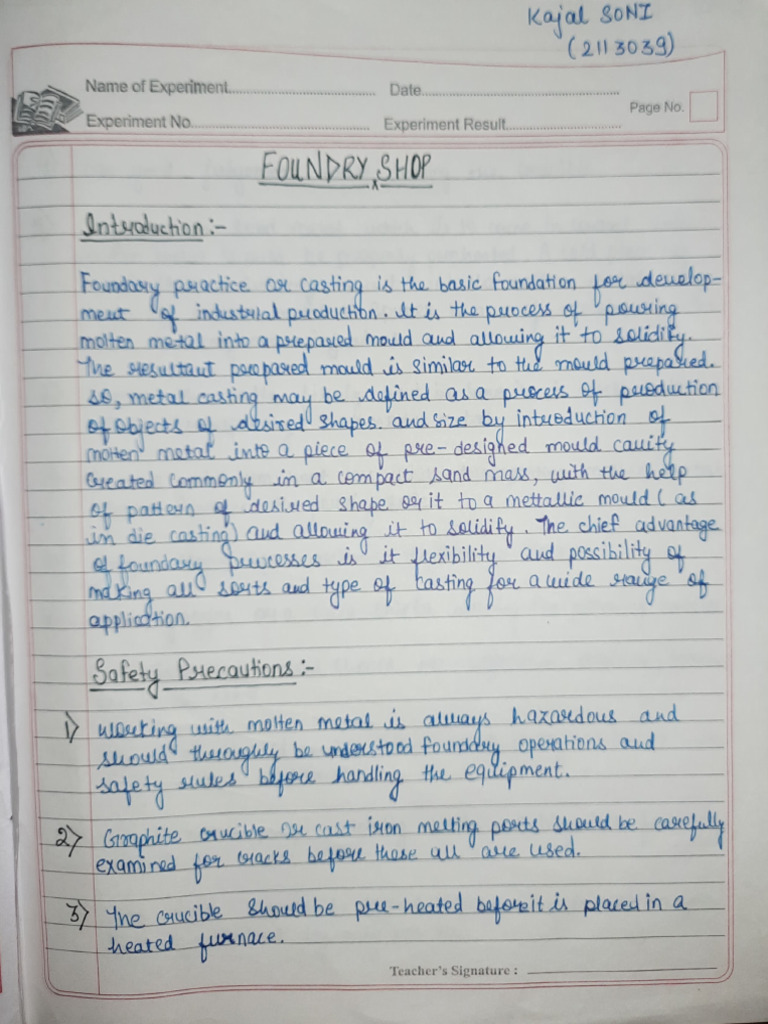 Kajal SONI
(2113039)
Name of Experiment.......................................... Date..........................................................
Page No.
Experiment No.................................................... Experiment Result.................................
FOUNDRY SHOP
Introduction :-
Foundary practice or casting is the basic foundation for develop-
ment of industrial production. It is the process of pouring
molten metal into a prepared mould and allowing it to solidify.
The resultant prepared mould is similar to the mould prepared.
so, metal casting may be defined as a process of production
of objects of desired shapes. and size by introduction of
molten metal into a piece of pre-designed mould cavity
created commonly in a compact sand mass, with the help
of pattern of desired shape or it to a mettallic mould ( as
in die casting) and allowing it to solidify. The chief advantage
of foundary processes is it flexibility and possibility of
making all sorts and type of casting for a wide range of
application.
Safety Precautions :-
1) Working with molten metal is always hazardous and
should throughly be understood foundary operations and
safety rules before handling the equipment.
2) Graphite crucible or cast iron melting ports should be carefully
examined for cracks before these all are used.
3) The crucible should be pre-heated before it is placed in a
heated furnace.
Teacher's Signature : ____________________